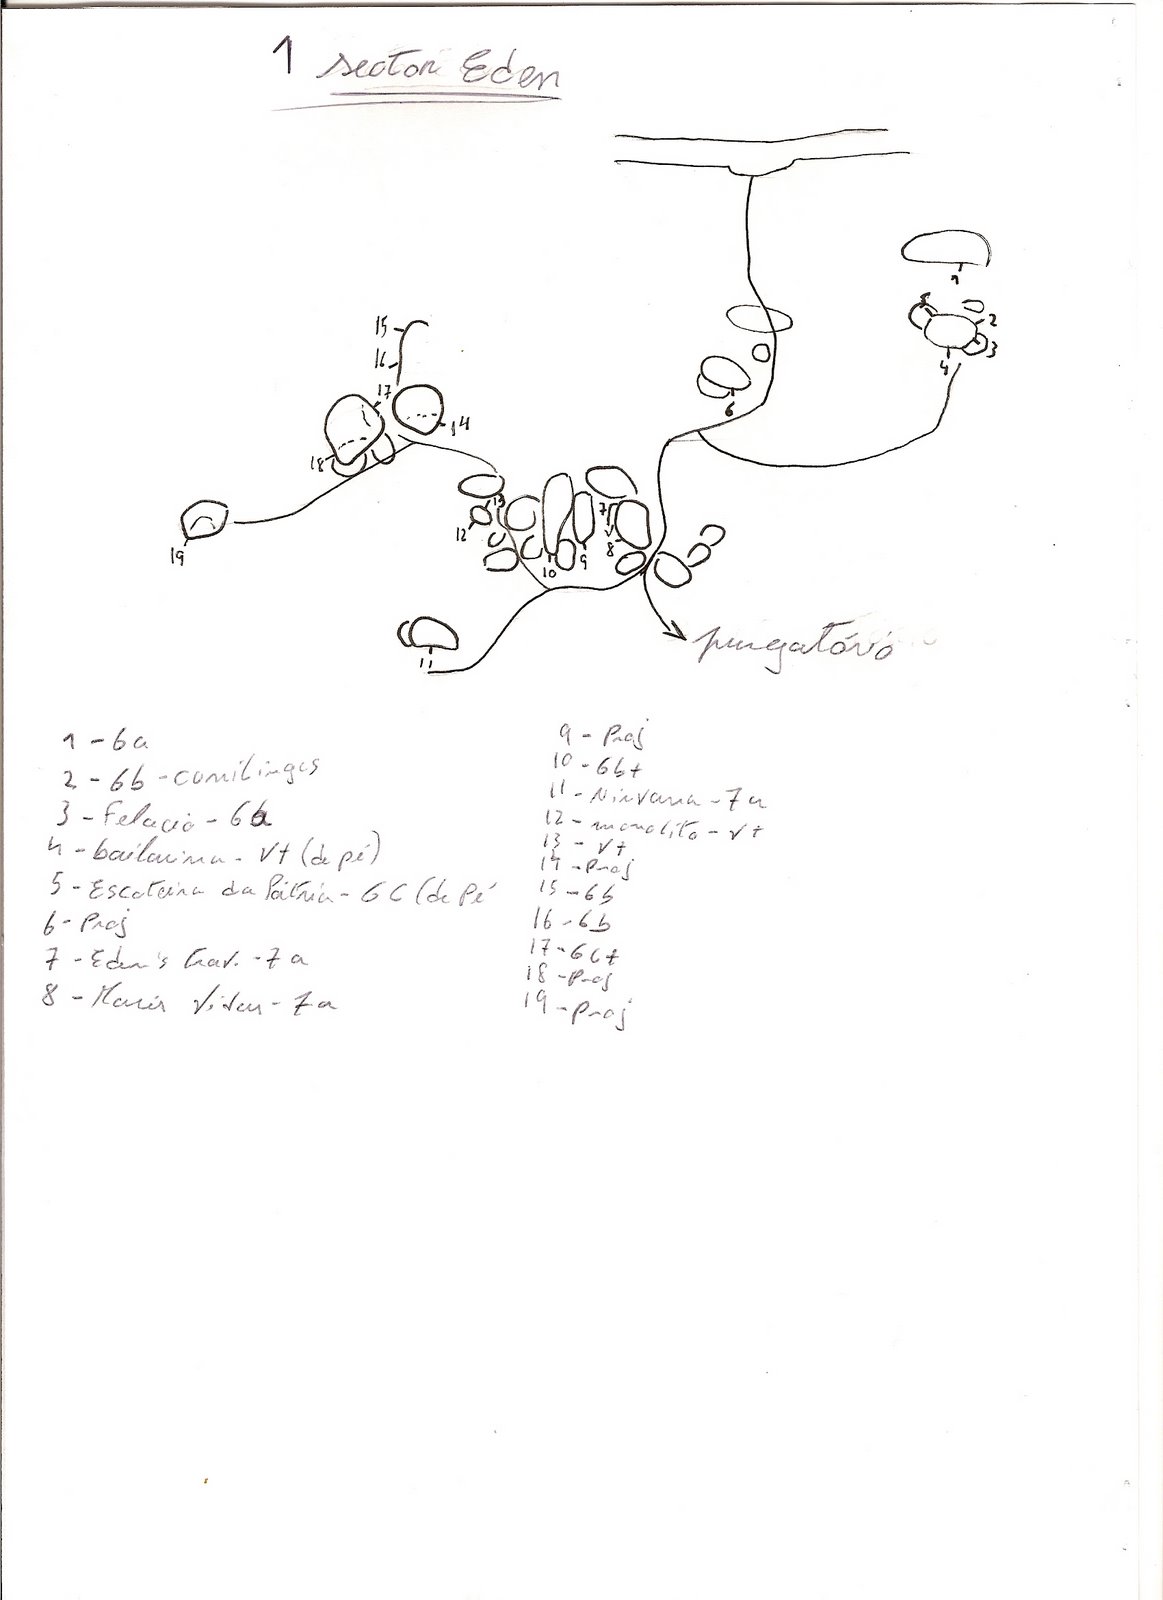 1 sector Eden
1
2
3
4
5
6
15
16
17
14
18
19
13
12
7
8
9
10
11
purgatório
1 - 6a
2 - 6b - cunilinges
3 - Felacio - 6a
4 - bailarina - V+ (de pé)
5 - Escoteira da Pátria - 6C (de Pé
6 - Proj
7 - Eden's trav. - 7a
8 - 7a
9 - Proj
10 - 6b+
11 - Nirvana - 7a
12 - monolito - V+
13 - V+
14 - Proj
15 - 6b
16 - 6b
17 - 6c+
18 - Proj
19 - Proj